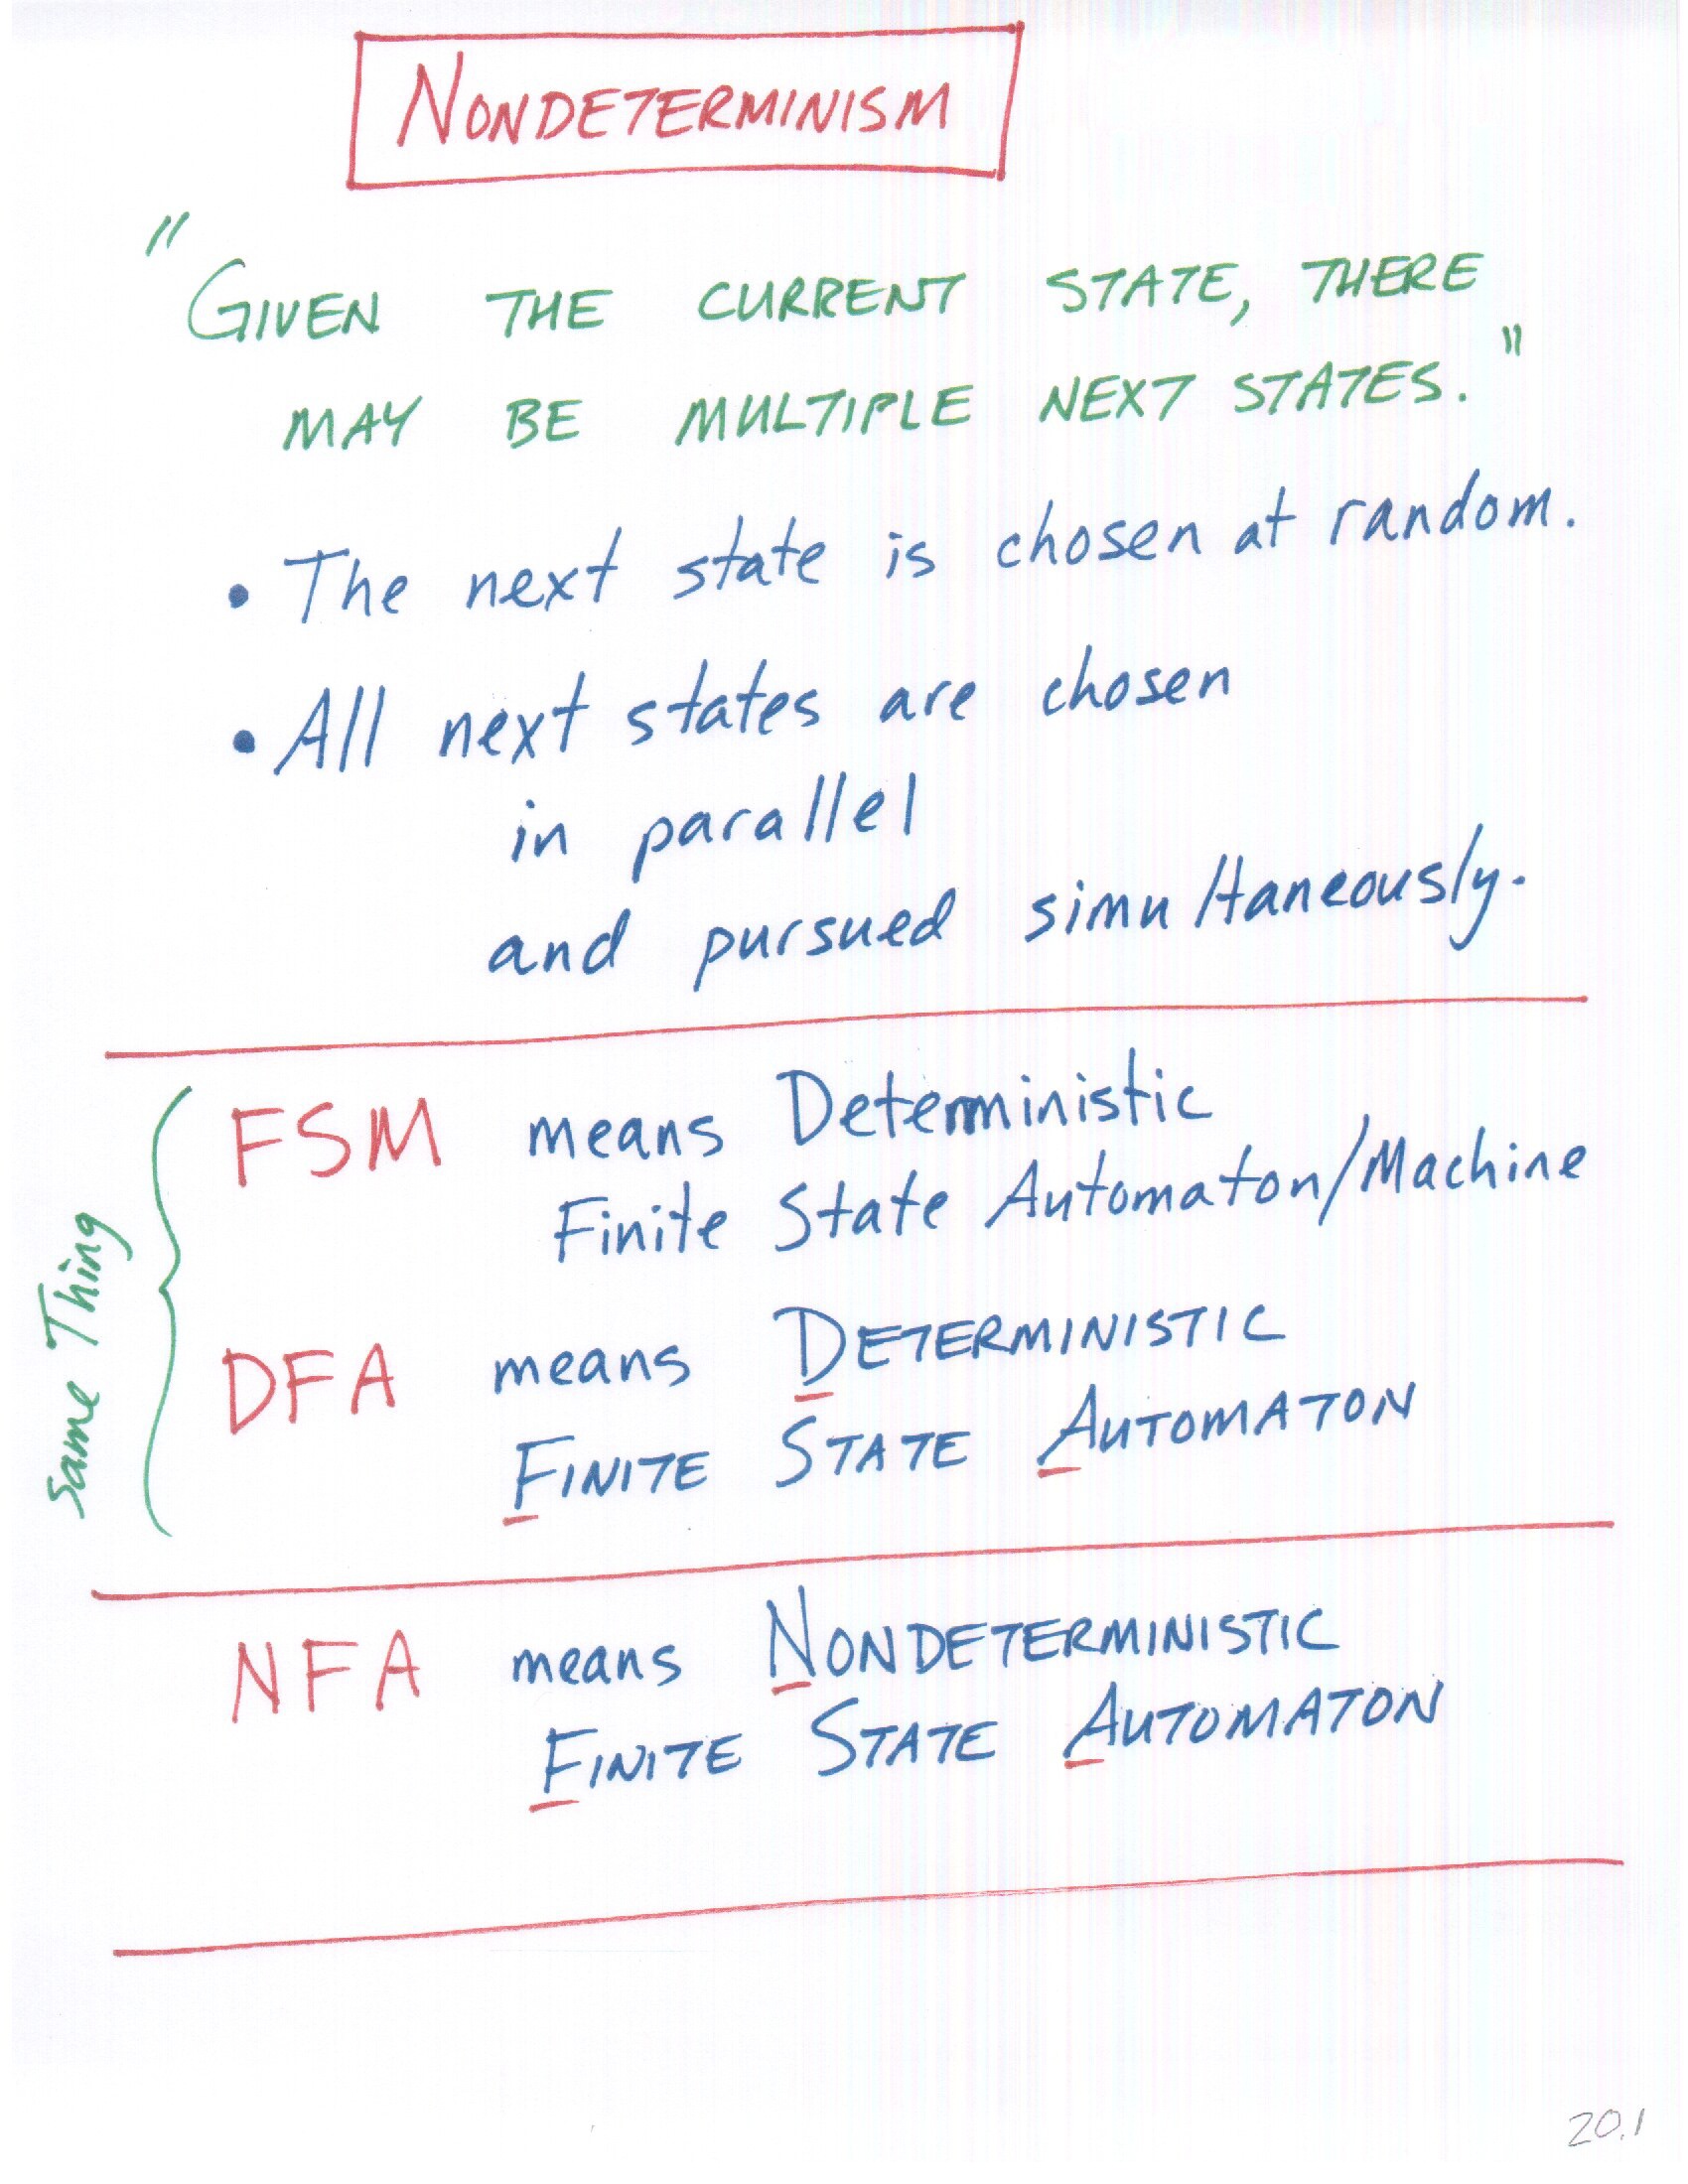 NONDETERMINISM
"GIVEN THE CURRENT STATE, THERE
MAY BE MULTIPLE NEXT STATES."
• The next state is chosen at random.
• All next states are chosen
in parallel
and pursued simultaneously.
Same Thing
FSM means Deterministic
Finite State Automaton/Machine
DFA means DETERMINISTIC
FINITE STATE AUTOMATON
NFA means NONDETERMINISTIC
FINITE STATE AUTOMATON
20.1